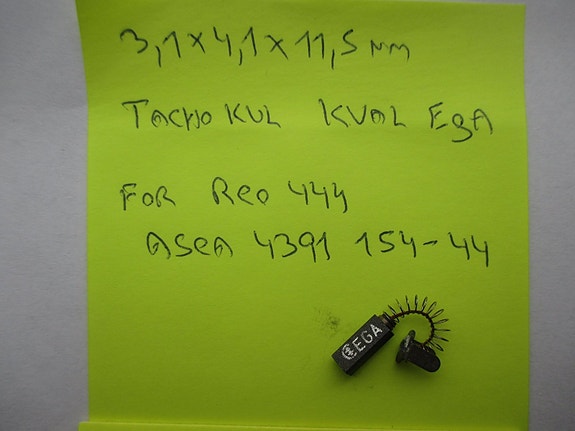 3,1x4,1x11,5 mm
TACHO KUL KVAL EgA
FOR REO 444
ASEA 4391 154-44
EGA